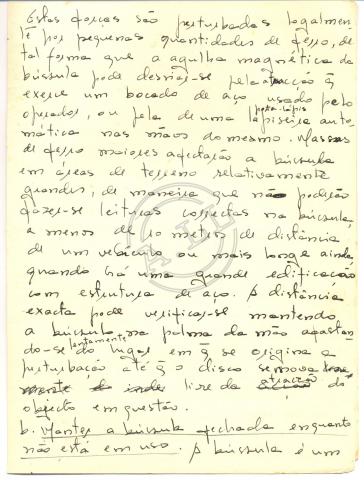 Estas forças são perturbadas logalmen
te por pequenas quantidades de ferro, de
tal forma que a agulha magnética da
bússula pode desviar-se pela atracção q̃
exerce um bocado de aço usado pelo
porta-lápis
operador, ou pela de uma lapiseira auto
mática nas mãos do mesmo. Massas
de ferro maiores afectarão a bússula
em áreas de terreno relativamente
grandes, de maneira que não podirão
fazer-se leituras correctas na bússula,
a menos de 10 metros de distância
de um veículo ou mais longe ainda,
quando há uma grande edificação
com estrutura de aço. A distância
exacta pode verificar-se mantendo
a bússula na palma da mão afastan
lentamente
do-se do lugar em q̃ se origina a
perturbação até q̃ o disco se mova
mente livre da atração do
objecto em questão.
b. Manter a bússula fechada enquanto
não está em uso. A bússula é um